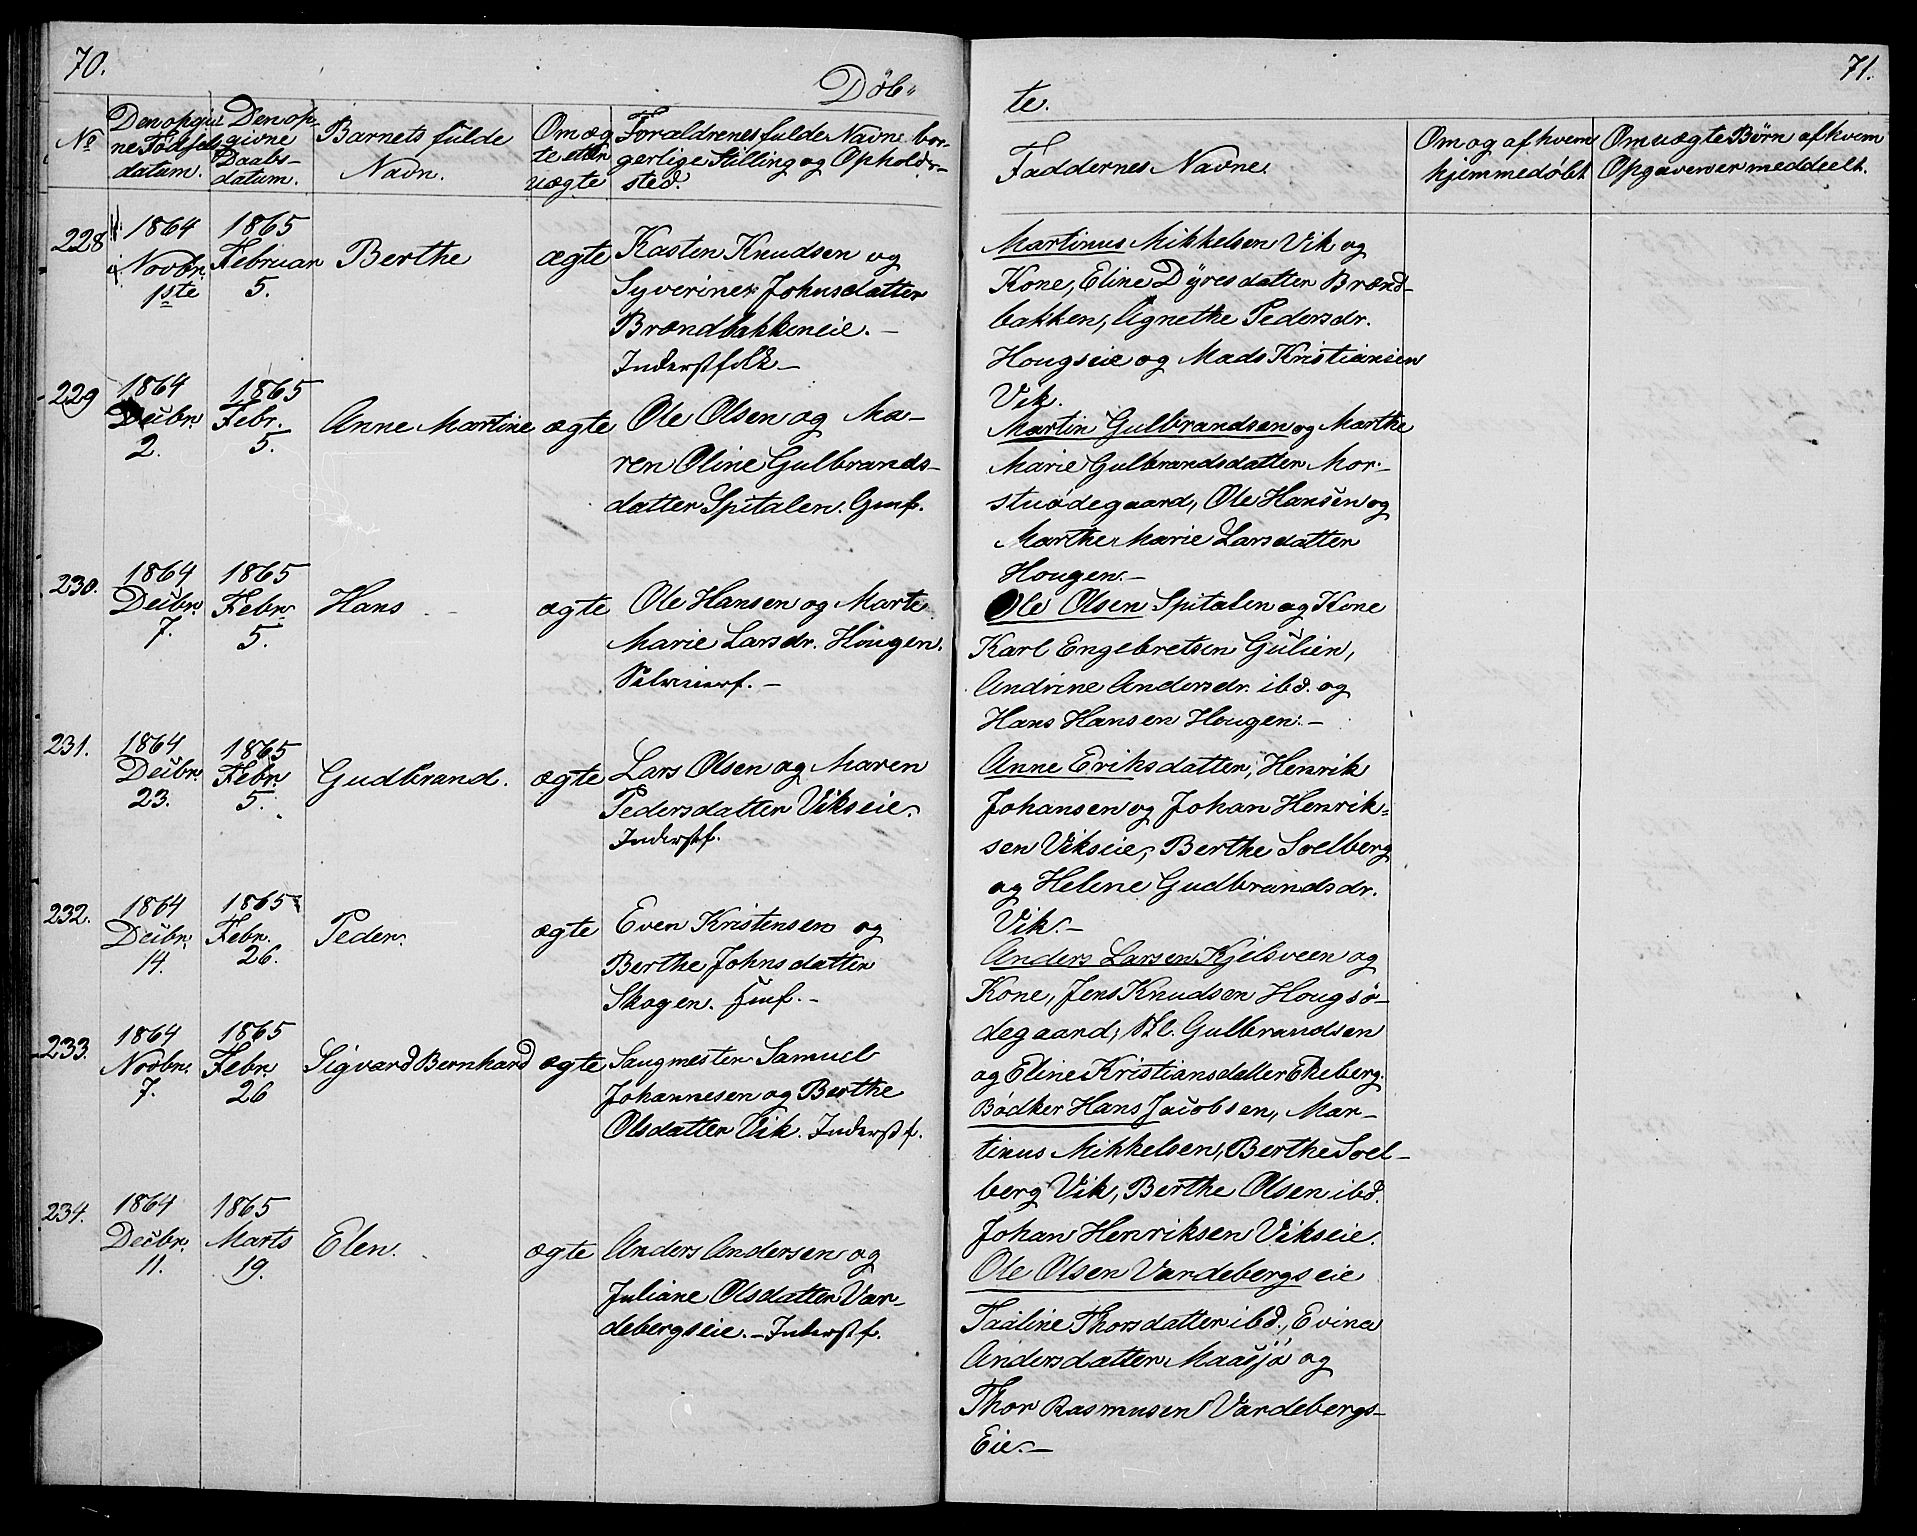 70.
Døb-
No
Den opgiv-
ne Fødsels-
datum.
Den op-
givne
Daabs-
datum.
Barnets fulde
Navn.
Om æg
te eller
uægte
Forældrenes fulde Navne bor-
gerlige Stilling og Opholds-
sted.
228
1864
Novbr.
1ste
1865
Februar
5.
Berthe
ægte
Kasten Knudsen og
Syverine Johnsdatter
Brændbakkeneie. -
Inderstfolk -
229
1864
Decbr.
2.
1865
Febr.
5.
Anne Martine
ægte
Ole Olsen og Ma-
ren Oline Gulbrands-
datter Spitalen. Gmf.
230.
1864
Decbr.
7.
1865
Febr.
5.
Hans
ægte
Ole Hansen og Marte
Marie Larsdr. Hougen.
Selveierf. -
231.
1864
Decbr.
23.
1865
Febr.
5.
Gudbrand.
ægte
Lars Olsen og Maren
Pedersdatter Vikseie.
Inderstf.
232.
1864
Decbr.
14.
1865
Febr.
26.
Peder.
ægte
Even Kristensen og
Berthe Johnsdatter
Skogen. -
233.
1864
Novbr.
7.
1865
Febr.
26
Sigvard Bernhard
ægte
Saugmester Samuel
Johannesen og Berthe
Olsdatter Vik. Inderstf.
234.
1864
Decbr.
11.
1865
Marts
19.
Elen.
ægte
Anders Andersen og
Juliane Olsdatter Var-
debergseie. - Inderstf.
71.
te.
Faddernes Navne.
Om og af hvem
hjemmedøbt
Om uægte Børn af hvem
Opgaven er meddeelt.
Martinus Mikkelsen Vik og
Kone, Eline Dyresdatter Brænd-
bakken, Agnethe Pedersdr.
Hougseie og Mads Kristiansen
Vik.
Martin Gulbrandsen og Marthe
Marie Gulbrandsdatter Mor-
stuødegaard, Ole Hansen og
Marthe Marie Larsdatter
Hougen. -
Ole Olsen Spitalen og Kone
Karl Engebretsen Gulien,
Andrine Andersdr. ibd. og
Hans Hansen Hougen. -
Anne Eriksdatter, Henrik
Johansen og Johan Henrik-
sen Vikseie, Berthe Soelberg
og Helene Gudbrandsdr.
Vik. -
Anders Larsen Kjelsveen og
Kone, Jens Knudsen Hougsø-
degaard, Gulbrandsen
og Eline Kristiansdatter Ekeberg.
Bødker Hans Jacobsen, Mar-
tinus Mikkelsen, Berthe Soel-
berg Vik, Berthe Olsen ibd.
Johan Henriksen Vikseie.
Ole Olsen Vardebergseie
Taaline Thorsdatter ibd., Evine
Andersdatter Maasjø og
Thor Rasmusen Vardebergs-
Eie. -